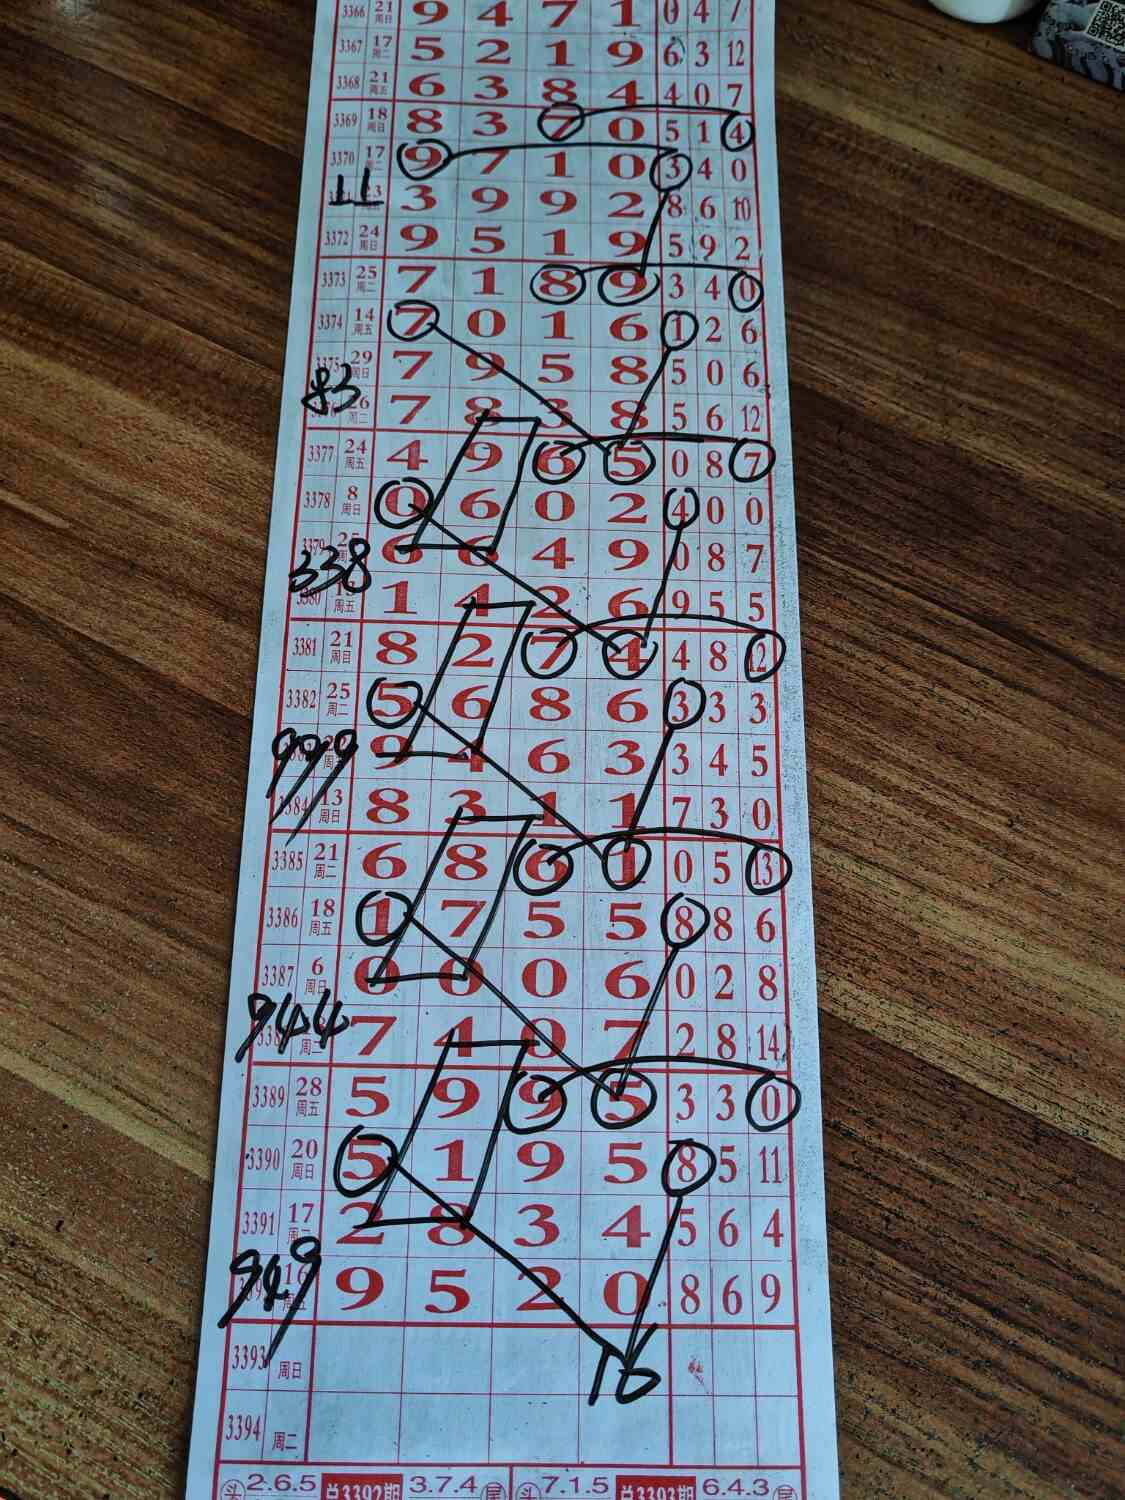 3366 21 周日 9 4 7 1 0 4 7
3367 17 周二 5 2 1 9 6 3 12
3368 21 周五 6 3 8 4 4 0 7
3369 18 周日 8 3 7 0 5 1 4
3370 17 周二 9 7 1 0 3 4 0
11 3 9 9 2 8 6 10
3372 24 周日 9 5 1 9 5 9 2
3373 25 周二 7 1 8 9 3 4 0
3374 14 周五 7 0 1 6 1 2 6
3375 29 周日 7 9 5 8 5 0 6
83 26 周二 7 8 3 8 5 6 12
3377 24 周五 4 9 6 5 0 8 7
3378 8 周日 0 6 0 2 4 0 0
3379 6 6 4 9 0 8 7
338
3380 周五 1 4 2 6 9 5 5
3381 21 周日 8 2 7 4 4 8 12
3382 25 周二 5 6 8 6 3 3 3
999 9 4 6 3 3 4 5
3384 13 周日 8 3 1 1 7 3 0
3385 21 周二 6 8 6 1 0 5 13
3386 18 周五 1 7 5 5 8 8 6
3387 6 周日 0 0 0 6 0 2 8
944 周二 7 4 0 7 2 8 14
3389 28 周五 5 9 9 5 3 3 0
3390 20 周日 5 1 9 5 8 5 11
3391 17 周二 2 8 3 4 5 6 4
949 16 周五 9 5 2 0 8 6 9
3393 周日 16
3394 周二
头 2.6.5 总3392期 3.7.4 尾 头 7.1.5 总3393期 6.4.3 尾